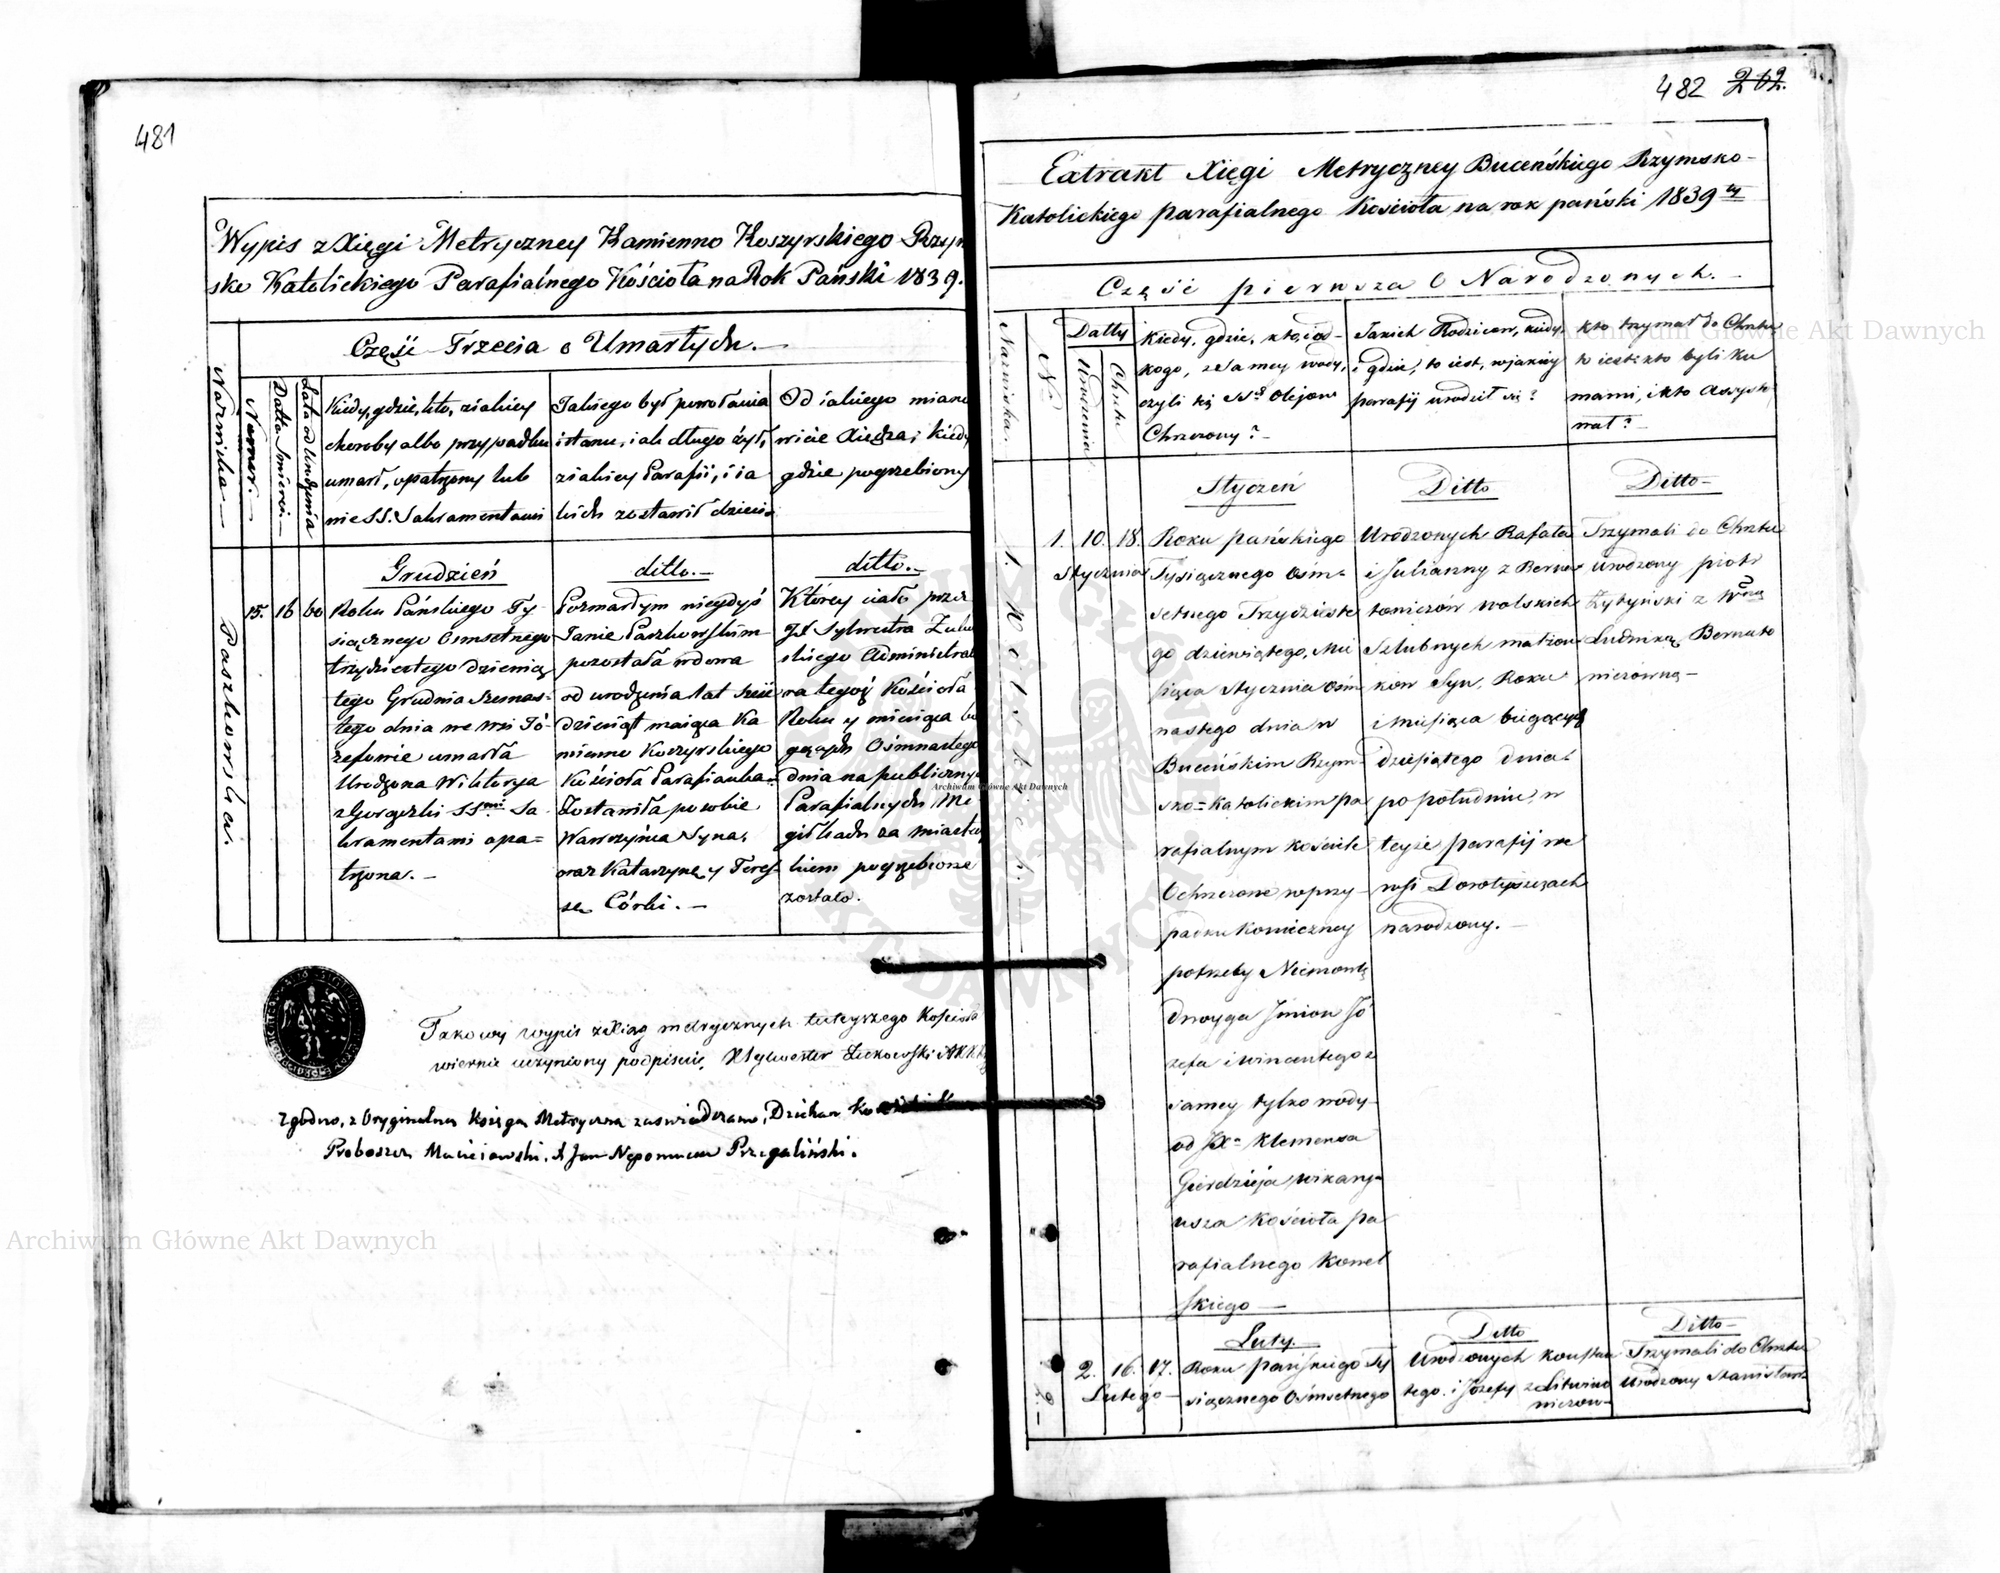 481
Wypis z Xięgi Metryczney Kamienno Koszyrskiego Rzym
sko Katolickiego Parafialnego Kościoła na Rok Pański 1839.
Część Trzecia o Umarłych.—
Nazwiska—
Numer.—
Datta Śmierci.—
Lata od Urodzenia
Kiedy, gdzie, kto, z iakiey
choroby albo przypadku
umarł, opatrzony lub
nie SS. Sakramentami
Jakiego był powołania
i stanu, i ak długo żył,
z iakiey Parafii, i ia
kich zostawił dzieci.
Od iakiego miano
wicie Xiędza, i kiedy
gdzie pogrzebiony
Grudzień
ditto.—
ditto.—
Paszkowska.
15. 16 60
Roku Pańskiego Ty-
siącznego Osmsetnego
trzydziestego dziewią
tego Grudnia Szesnas-
tego dnia we Wsi Jó-
zefowie umarła
Urodzona Wiktorya
z Gorzęzki SSmi Sa-
kramentami opa-
trzona.—
Pozmarłym niegdyś
Janie Paszkowskim
pozostała wdowa
od urodzenia lat sześć
dziesiąt maiąca Ka
mienno Koszyrskiego
Kościoła Parafianka.
Zostawiła po sobie
Wawrzyńca Syna,
oraz Katarzynę y Teres-
sę Córki.—
Którey ciało przez
JX Sylwestra Żuko
skiego Administrat
ra tegoż Kościoła
Roku y miesiąca bie
gących Osmnastego
dnia na publicznych
Parafialnych Mo
giłkach za miastecz
kiem pogrzebione
zostało.
Takowy wypis z Xiąg metrycznych tuteyszego Kościoła
wiernie uczyniony podpisuię, X Sylwester Żukowski AKKK
Zgodno, z Oryginalną Księgą Metryczną zaswiadczam, Dziekan Ko
Proboszcz Maciejowski. X Jan Nepomucen Przegaliński.
482 202.
Extrakt Xięgi Metryczney Buceńskiego Rzymsko-
Katolickiego parafialnego Kościoła na rok pański 1839ty
Część pierwsza O Narodzonych.—
Nazwiska.
No
Datty
Urodzenia
Chrztu
Kiedy, gdzie, kto, i od-
kogo, z samey wody,
czyli też SS Olejow
Chrzczony?—
Jakich Rodzicow, kiedy
i gdzie, to iest, w jakiey
parafij urodził się?
kto trzymał do Chrztu
to iest: kto byli ku
mami, i kto assysto
wał?—
Styczeń
Ditto
Ditto—
1. Wolski.
1. 10. 18.
Stycznia
Roku pańskiego
Tysiącznego Ośm-
setnego Trzydzieste
go dziewiątego, Mie
siąca Stycznia Ośm
nastego dnia w
Buceńskim Rzym-
sko=Katolickim pa
rafialnym kościele
Ochrzczone w przy-
padku konieczney
potrzeby Niemowlę
dwoyga Jmion Jó
zefa i Wincentego z
samey tylko wody-
od JXa Klemensa
Gierdzieja wikary-
usza kościoła pa
rafialnego Kowel
skiego—
Urodzonych Rafała
i Julianny z Berna
towiczów Wolskich
Szlubnych małżon
kow Syn, Roku
i miesiąca biegących
dziesiątego dnia
po południu, w
teyże parafij we
wsi Dorotyszczach
narodzony.—
Trzymali do Chrztu
Urodzony Piotr
Żytyński z Wną
Ludwiką Bernato
wiczówną—
Luty.—
Ditto
Ditto—
2.—
2. 16. 17.
Lutego—
Roku pańskiego Ty
siącznego Ośmsetnego
Urodzonych Konstan
tego i Józefy z Litwino
wiczow—
Trzymali do Chrztu
Urodzony Stanisław
Archiwum Główne Akt Dawnych
Archiwum Główne Akt Dawnych
Archiwum Główne Akt Dawnych